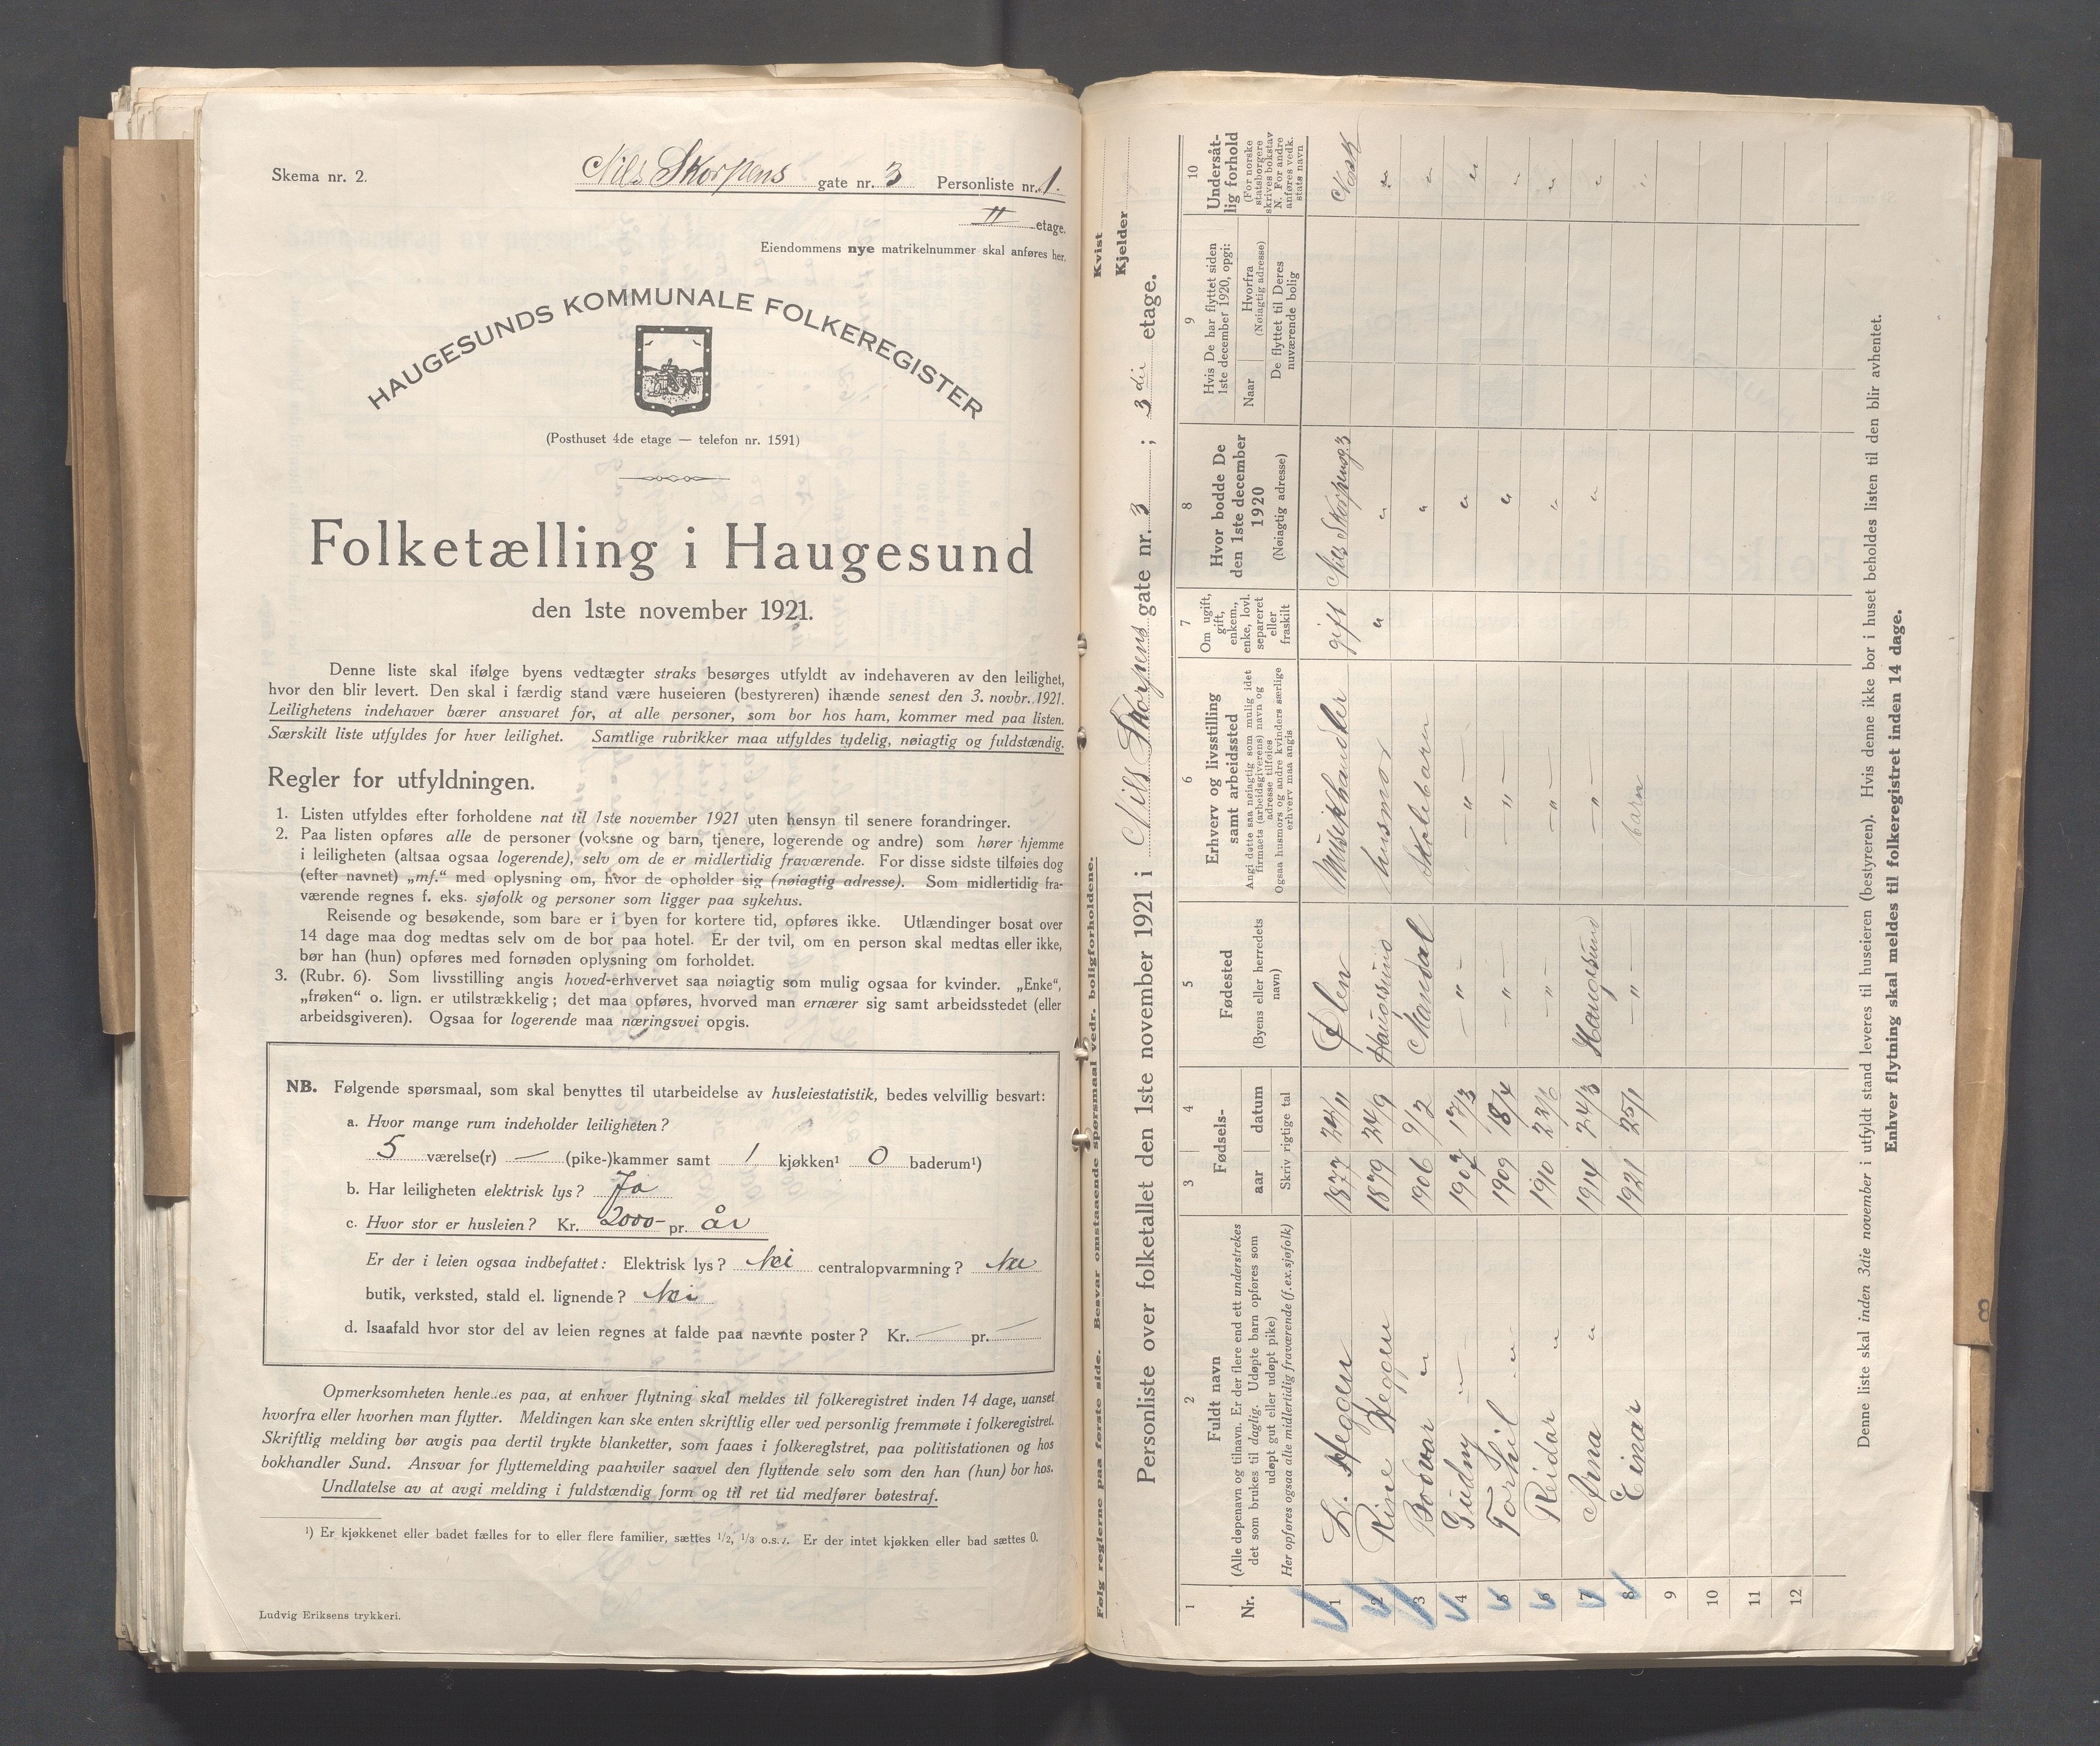 Skema nr. 2.
Nils Skorpens gate nr. 3 Personliste nr. 1.
II etage.
Eiendommens nye matrikelnummer skal anføres her.
HAUGESUNDS KOMMUNALE FOLKEREGISTER
(Posthuset 4de etage — telefon nr. 1591)
Folketælling i Haugesund
den 1ste november 1921.
Denne liste skal ifølge byens vedtægter straks besørges utfyldt av indehaveren av den leilighet,
hvor den blir levert. Den skal i færdig stand være huseieren (bestyreren) ihænde senest den 3. novbr. 1921.
Leilighetens indehaver bærer ansvaret for, at alle personer, som bor hos ham, kommer med paa listen.
Særskilt liste utfyldes for hver leilighet. Samtlige rubrikker maa utfyldes tydelig, nøiagtig og fuldstændig.
Regler for utfyldningen.
1. Listen utfyldes efter forholdene nat til 1ste november 1921 uten hensyn til senere forandringer.
2. Paa listen opføres alle de personer (voksne og barn, tjenere, logerende og andre) som hører hjemme
i leiligheten (altsaa ogsaa logerende), selv om de er midlertidig fraværende. For disse sidste tilføies dog
(efter navnet) „mf.“ med oplysning om, hvor de opholder sig (nøiagtig adresse). Som midlertidig fra-
værende regnes f. eks. sjøfolk og personer som ligger paa sykehus.
Reisende og besøkende, som bare er i byen for kortere tid, opføres ikke. Utlændinger bosat over
14 dage maa dog medtas selv om de bor paa hotel. Er der tvil, om en person skal medtas eller ikke,
bør han (hun) opføres med fornøden oplysning om forholdet.
3. (Rubr. 6). Som livsstilling angis hoved-erhvervet saa nøiagtig som mulig ogsaa for kvinder. „Enke“,
„frøken“ o. lign. er utilstrækkelig; det maa opføres, hvorved man ernærer sig samt arbeidsstedet (eller
arbeidsgiveren). Ogsaa for logerende maa næringsvei opgis.
NB. Følgende spørsmaal, som skal benyttes til utarbeidelse av husleiestatistik, bedes velvillig besvart:
a. Hvor mange rum indeholder leiligheten?
5 værelse(r) — (pike-)kammer samt 1 kjøkken¹ 0 baderum¹)
b. Har leiligheten elektrisk lys? Ja
c. Hvor stor er husleien? Kr. 2000- pr. år
Er der i leien ogsaa indbefattet: Elektrisk lys? Nei centralopvarmning? Nei
butik, verksted, stald el. lignende? Nei
d. Isaafald hvor stor del av leien regnes at falde paa nævnte poster? Kr. — pr. —
Opmerksomheten henledes paa, at enhver flytning skal meldes til folkeregistret inden 14 dage, uanset
hvorfra eller hvorhen man flytter. Meldingen kan ske enten skriftlig eller ved personlig fremmøte i folkeregistret.
Skriftlig melding bør avgis paa dertil trykte blanketter, som faaes i folkeregistret, paa politistationen og hos
bokhandler Sund. Ansvar for flyttemelding paahviler saavel den flyttende selv som den han (hun) bor hos.
Undlatelse av at avgi melding i fuldstændig form og til ret tid medfører bøtestraf.
¹) Er kjøkkenet eller badet fælles for to eller flere familier, sættes 1/2, 1/3 o.s.v. Er der intet kjøkken eller bad sættes 0.
Ludvig Eriksens trykkeri.
Følg reglerne paa første side. Besvar omstaaende spørsmaal vedr. boligforholdene.
Kvist
Kjelder
Personliste over folketallet den 1ste november 1921 i Nils Skorpens gate nr. 3 ; 3die etage.
1 2 3 4 5 6 7 8 9 10
Nr.
Fuldt navn
(Alle døpenavn og tilnavn. Er der flere end ett understrekes
det som brukes til daglig. Udøpte barn opføres som
udøpt gut eller udøpt pike)
Her opføres ogsaa alle midlertidig fraværende (f. ex. sjøfolk)
Fødsels-
aar datum
Skriv rigtige tal
Fødested
(Byens eller herredets
navn)
Erhverv og livsstilling
samt arbeidssted
Angi dette saa nøiagtig som mulig idet
firmaets (arbeidsgiverens) navn og
adresse tilføies
Ogsaa husmors og andre kvinders særlige
erhverv maa angis
Om ugift,
gift,
enkem.,
enke, lovl.
separeret
eller
fraskilt
Hvor bodde De
den 1ste december
1920
(Nøiagtig adresse)
Hvis De har flyttet siden
1ste december 1920, opgi:
Naar
Hvorfra
(Nøiagtig adresse)
De flyttet til Deres
nuværende bolig
Undersåt-
lig forhold
(For norske
statsborgere
skrives bokstav
N. For andre
anføres vedk.
stats navn
1 L. Heggen 1877 24/11 Ølen Musikhandler gift Nils Skorpensg. 3 Norsk
2 Rine Heggen 1879 24/9 Haugesund husmor " " "
3 Bodvar " 1906 9/2 Mandal Skolebarn " "
4 Gudny — 1907 17/3 — " — — " — " "
5 Torhil " 1909 18/4 — " — — " — " "
6 Reidar " 1910 23/6 — " — — " — " "
7 Arna " 1914 24/3 Haugesund — " — " "
8 Einar 1921 25/1 — " — barn "
9
10
11
12
Denne liste skal inden 3die november i utfyldt stand leveres til huseieren (bestyreren). Hvis denne ikke bor i huset beholdes listen til den blir avhentet.
Enhver flytning skal meldes til folkeregistret inden 14 dage.
8